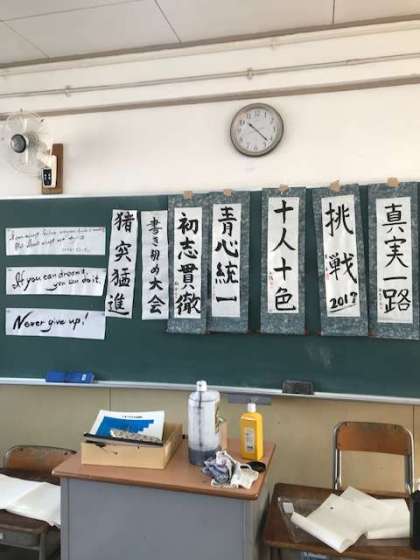 I can accept failure
If you can dream it,
you can do it.
Never give up!
猪突猛進
書き初め大会
初志貫徹
青心統一
十人十色
挑戦
2017
真実一路